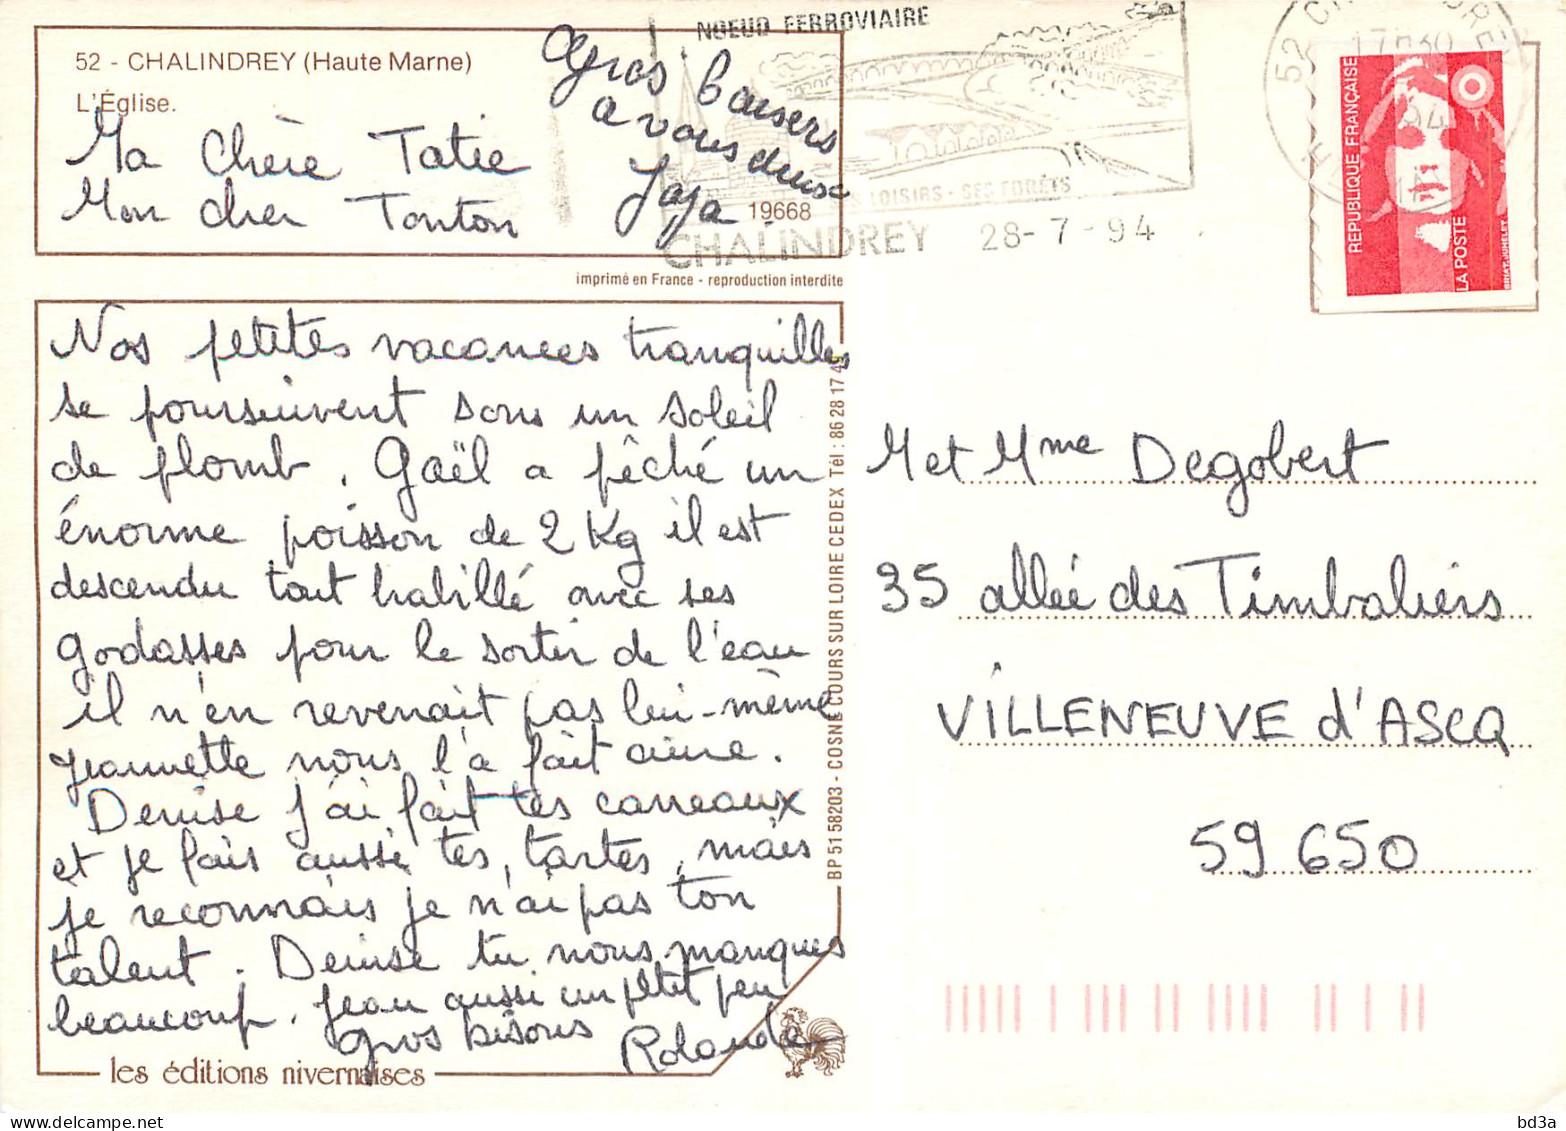 NOEUD FERROVIAIRE
52 - CHALINDREY (Haute Marne)
L'Église.
Ma chère Tatie
Mon cher Tonton
gros baisers
a vous deux
Jaja
19668
LOISIRS - SES FORÊTS
CHALINDREY 28-7-94
17H30
RÉPUBLIQUE FRANÇAISE
LA POSTE
imprimé en France - reproduction interdite
Nos petites vacances tranquilles
se poursuivent sous un soleil
de plomb. Gaël a pêché un
énorme poisson de 2 Kg il est
descendu tout habillé avec ses
godasses pour le sortir de l'eau
il n'en revenait pas lui-même
Jeannette nous l'a fait cuire.
Denise j'ai fait tes carreaux
et je fais aussi tes tartes, mais
je reconnais je n'ai pas ton
talent. Denise tu nous manques
beaucoup. Jean aussi un petit peu
Gros bisous Rolande
les éditions nivernaises
BP 51 58203 - COSNE COURS SUR LOIRE CEDEX Tél : 86 28 17 4
M et Mme Degobert
35 allée des Timbaliers
VILLENEUVE d'ASCQ
59 650
bd3a